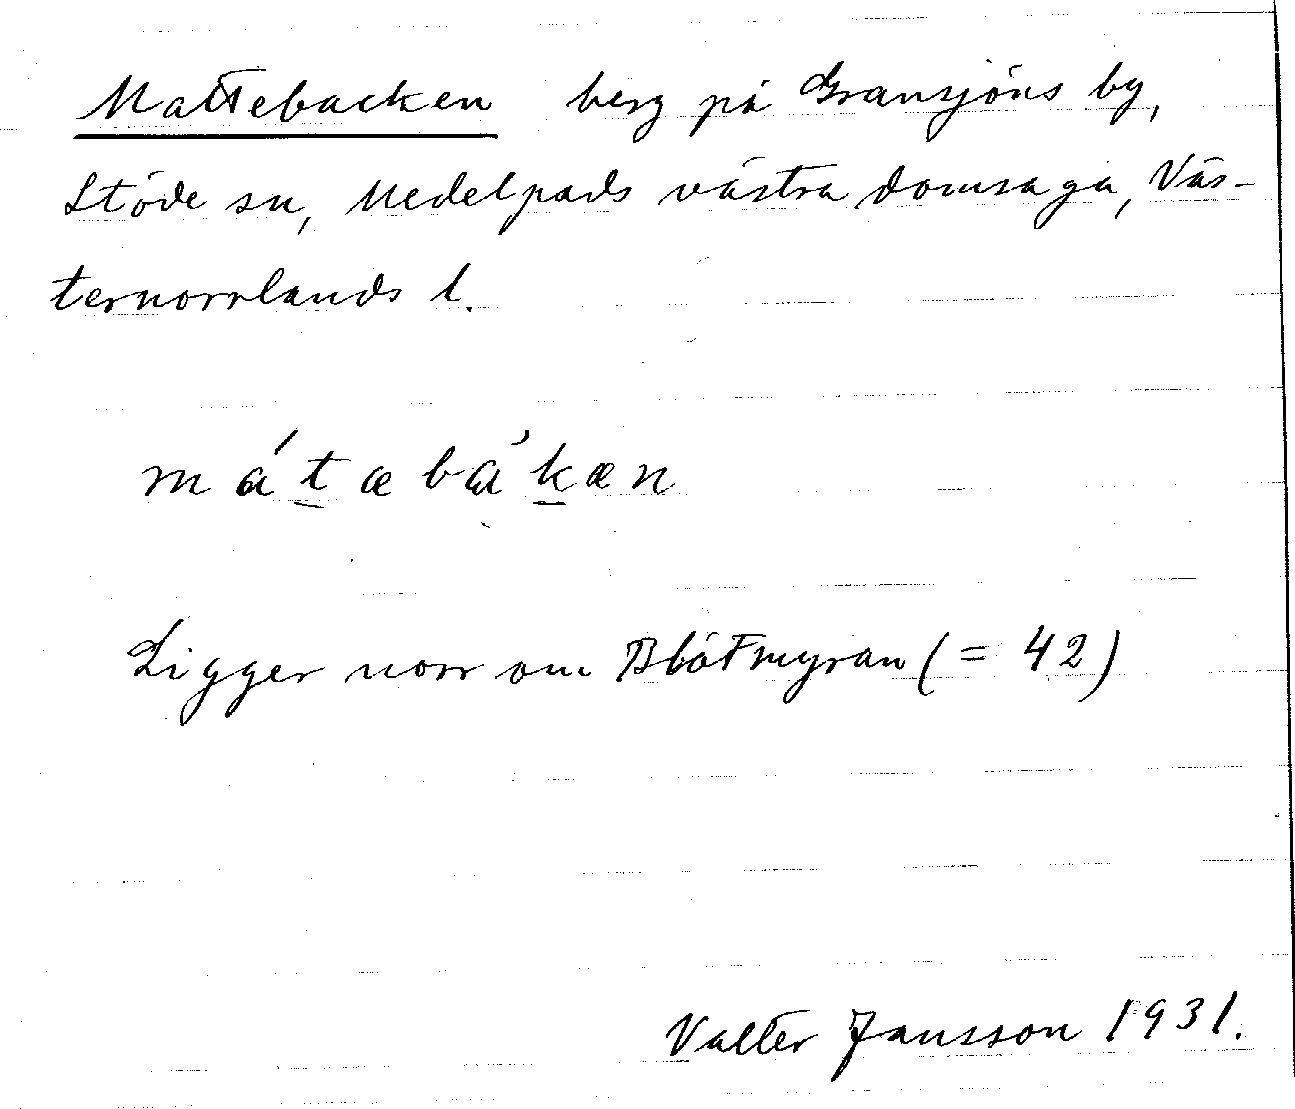 Mattebacken berg på Gransjöns by,
Stöde sn, Medelpads västra domsaga, Väs-
ternorrlands l.
mátæbàkæn
Ligger norr om Blötmyran (= 42)
Valter Jansson 1931.